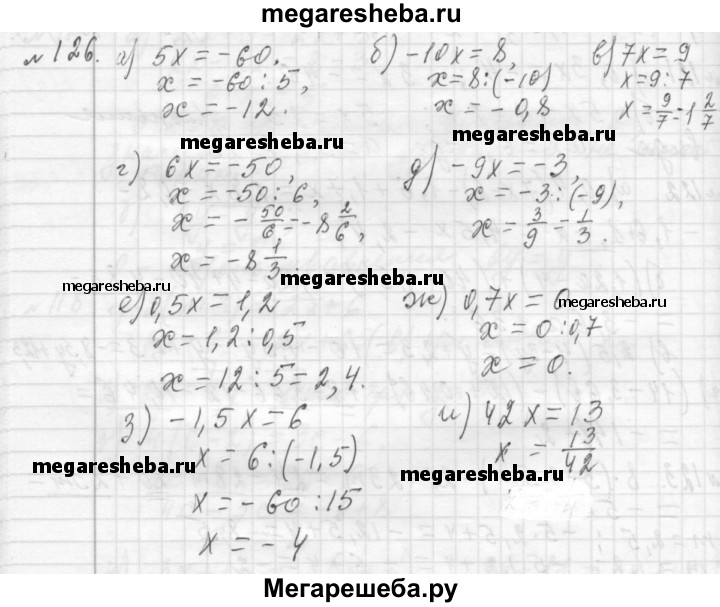 megaresheba.ru
№126. а) 5x = -60.
x = -60 : 5,
x = -12.
б) -10x = 8,
x = 8 : (-10)
x = -0,8
в) 7x = 9
x = 9 : 7
x = 9/7 = 1 2/7
megaresheba.ru
megaresheba.ru
г) 6x = -50,
x = -50 : 6,
x = - 50/6 = -8 2/6,
x = -8 1/3.
megaresheba.ru
д) -9x = -3,
x = -3 : (-9),
x = 3/9 = 1/3.
megaresheba.ru
megaresheba.ru
е) 0,5x = 1,2
x = 1,2 : 0,5
x = 12 : 5 = 2,4.
ж) 0,7x = 0
x = 0 : 0,7
x = 0.
з) -1,5x = 6
x = 6 : (-1,5)
x = -60 : 15
x = -4
megaresheba.ru
и) 42x = 13
x = 13/42
megaresheba.ru
Мегарешеба.ру